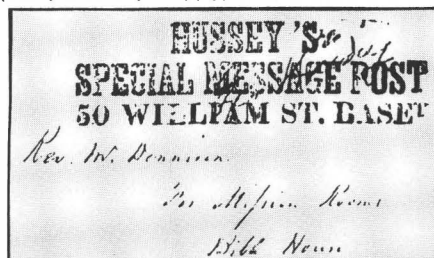 HUSSEY'S
SPECIAL MESSAGE POST
50 WILLPAM ST. BASET
Rev. W.
For Mission Rooms
Bible House